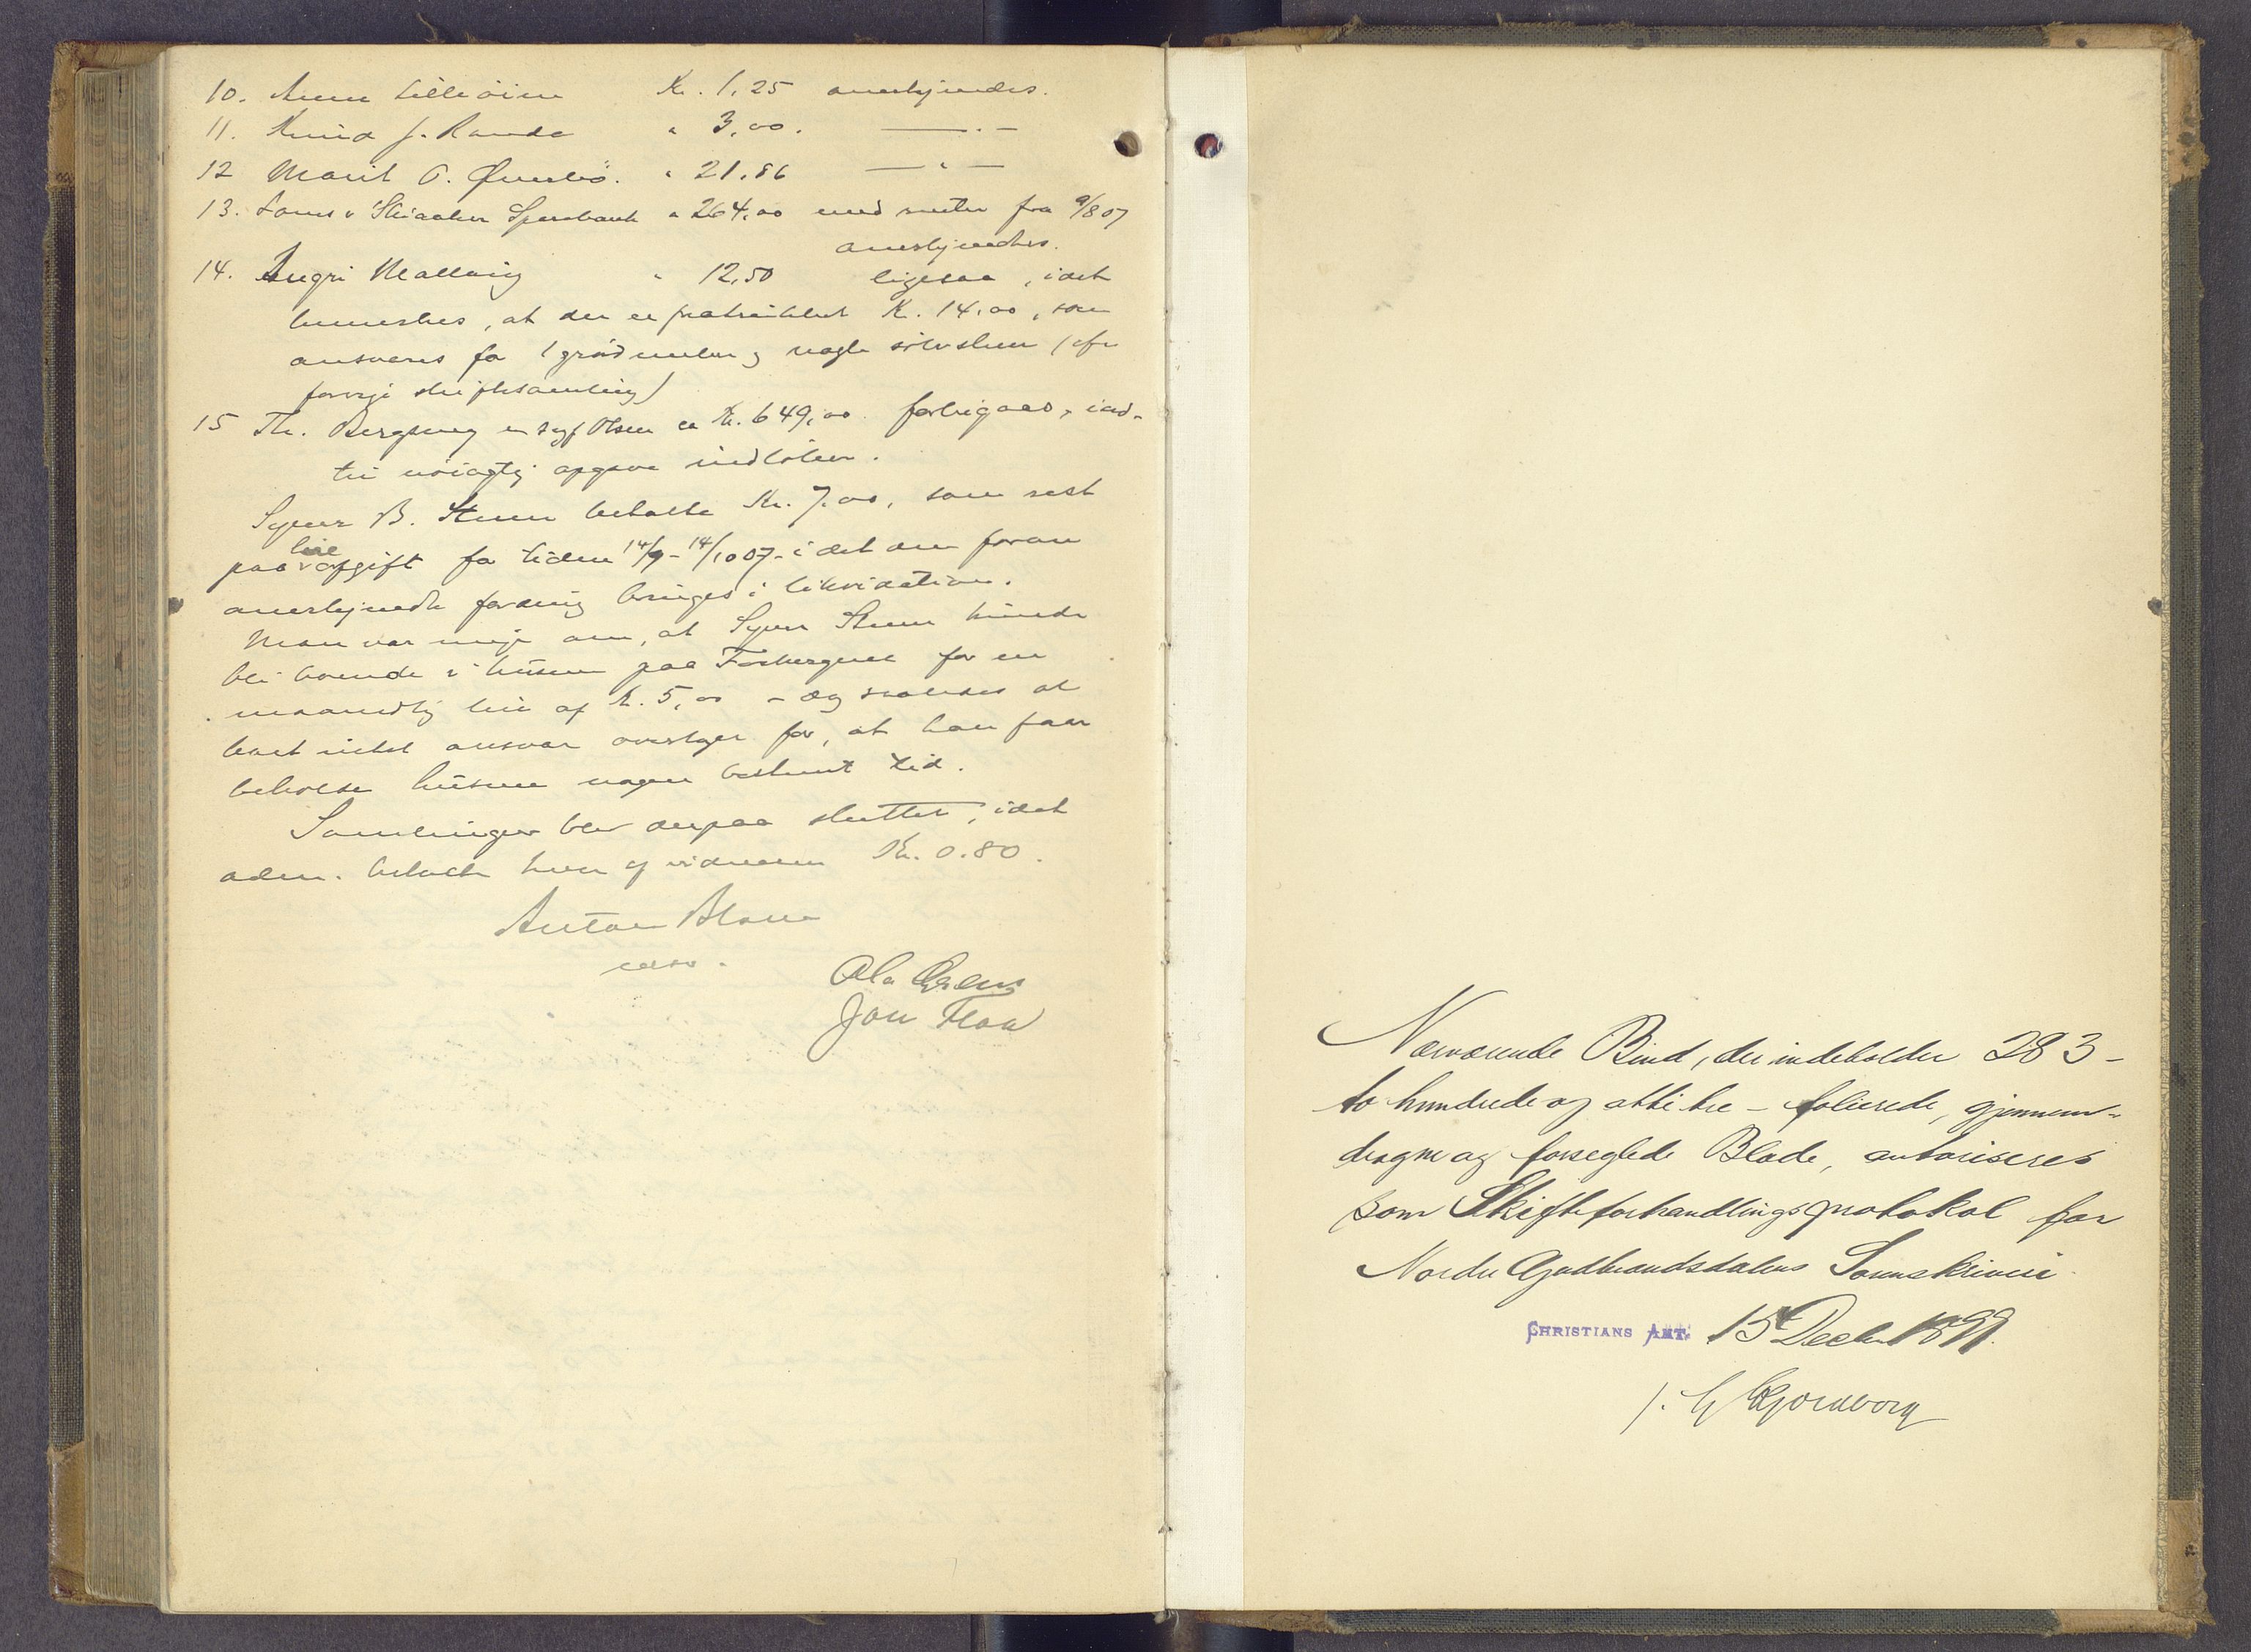 10. Anne Lilleøien Kr. 1,25 anerkjendes.
11. Knud J. Ramde " 3,00. — . —
12 Marit O. Øvrebø. " 21,86 — " —
13. Loms & Skiaaker Sparebank " 264,00 med renter fra 9/8 07
anerkjendes.
14. Ingri Malling " 12,50 ligesaa, idet
bemerkes, at der er fratrukket Kr. 14,00, som
ansvares for 1 grød og nogle (cfr
forrige skiftesamling)
15 Th. Bergseng Olsen ca Kr. 649,00. forbigaaes, ind-
til nøiagtig opgave indløber.
Syver B. Steen betalte Kr. 7,00, som rest
paa leieafgift for tiden 14/9 - 14/10 07 - idet den foran
anerkjendte fordring bringes i likvidation.
Man var enige om, at Syver Steen kunde
bli boende i husene paa Forbergene for en
maanedlig leie af Kr. 5,00 - og saaledes at
boet intet ansvar overtager for, at han faar
beholde husene nogen bestemt tid.
Samlingen blev derpaa sluttet, idet
adm. betalte hver af vidnerne Kr. 0.80.
Anton Blom
const.
Ola
Jon Flaa
Nærværende Bind, der indeholder 283 -
to hundrede og otti tre - folierede, gjennem-
dragne og forseglede Blade, autoriseres
som Skifteforhandlingsprotokol for
Nordre Gudbrandsdalens Sorenskriveri
CHRISTIANS AMT. 15 Decbr 1899.